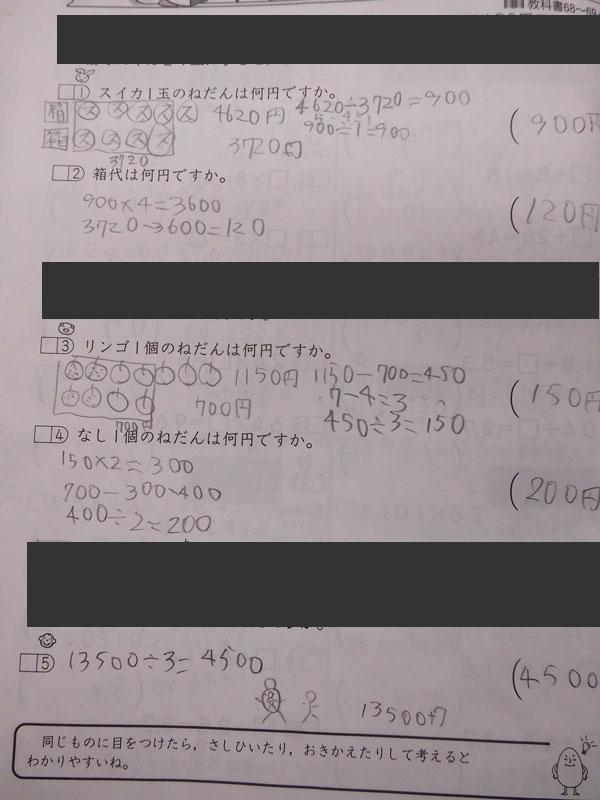 教科書68〜69
1 スイカ1玉のねだんは何円ですか。
箱 ス ス ス ス ス 4620円 4620÷3720=900
5-4=1
箱 ス ス ス ス 3720円 900÷1=900
3720
(900円
2 箱代は何円ですか。
900×4=3600
3720-3600=120
(120円
3 リンゴ1個のねだんは何円ですか。
1150円 1150-700=450
7-4=3
700円 450÷3=150
700円
(150円
4 なし1個のねだんは何円ですか。
150×2=300
700-300=400
400÷2=200
(200円
5 13500÷3=4500
(4500
13500÷7
同じものに目をつけたら，さしひいたり，おきかえたりして考えると
わかりやすいね。